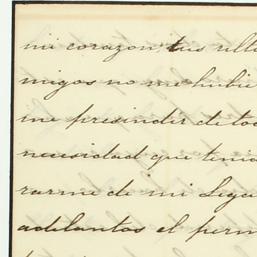 mi corazon tus ulti
migos no me hubie
me presindir de to
necesidad que tenia
rarme de mi Lega
adelantos el perm